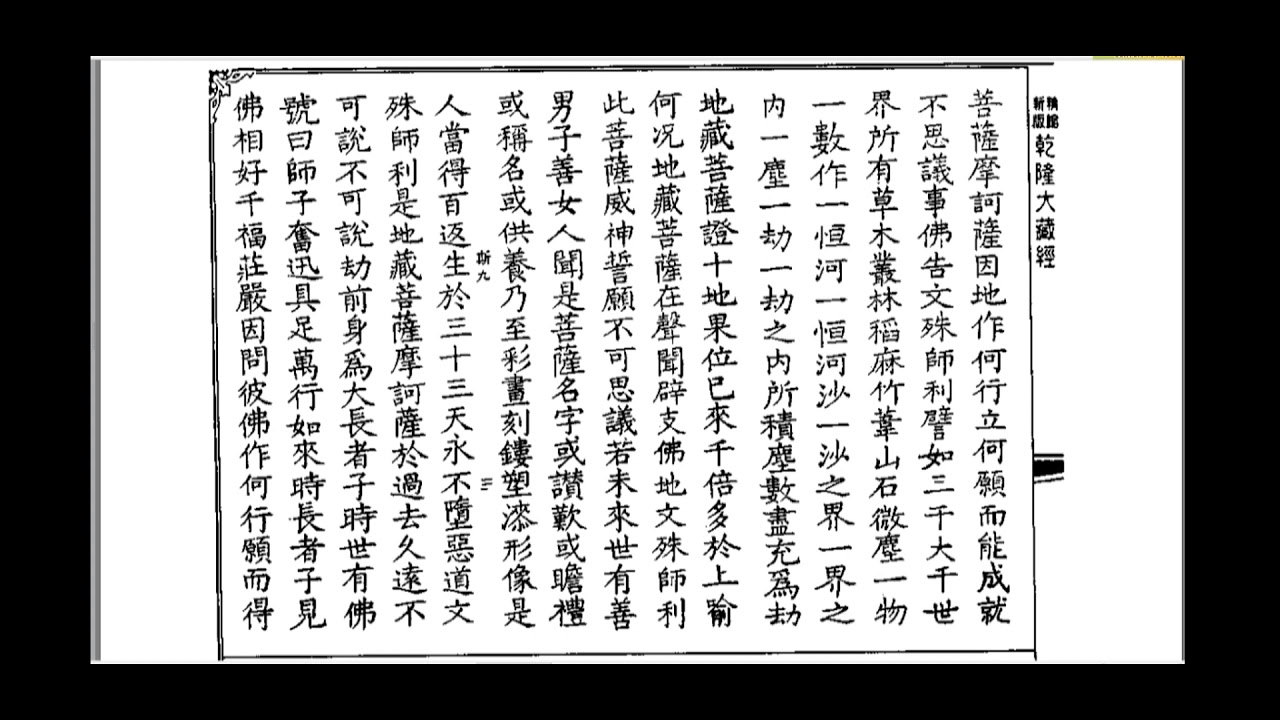 新版
精縮
乾隆大藏經
菩薩摩訶薩因地作何行立何願而能成就
不思議事佛告文殊師利譬如三千大千世
界所有草木叢林稻麻竹葦山石微塵一物
一數作一恒河一恒河沙一沙之界一界之
内一塵一劫一劫之内所積塵數盡充為劫
地藏菩薩證十地果位已來千倍多於上喻
何况地藏菩薩在聲聞辟支佛地文殊師利
此菩薩威神誓願不可思議若未來世有善
男子善女人聞是菩薩名字或讚歎或瞻禮
或稱名或供養乃至彩畫刻鏤塑漆形像是
斯九
三
人當得百返生於三十三天永不墮惡道文
殊師利是地藏菩薩摩訶薩於過去久遠不
可說不可說劫前身為大長者子時世有佛
號曰師子奮迅具足萬行如來時長者子見
佛相好千福莊嚴因問彼佛作何行願而得